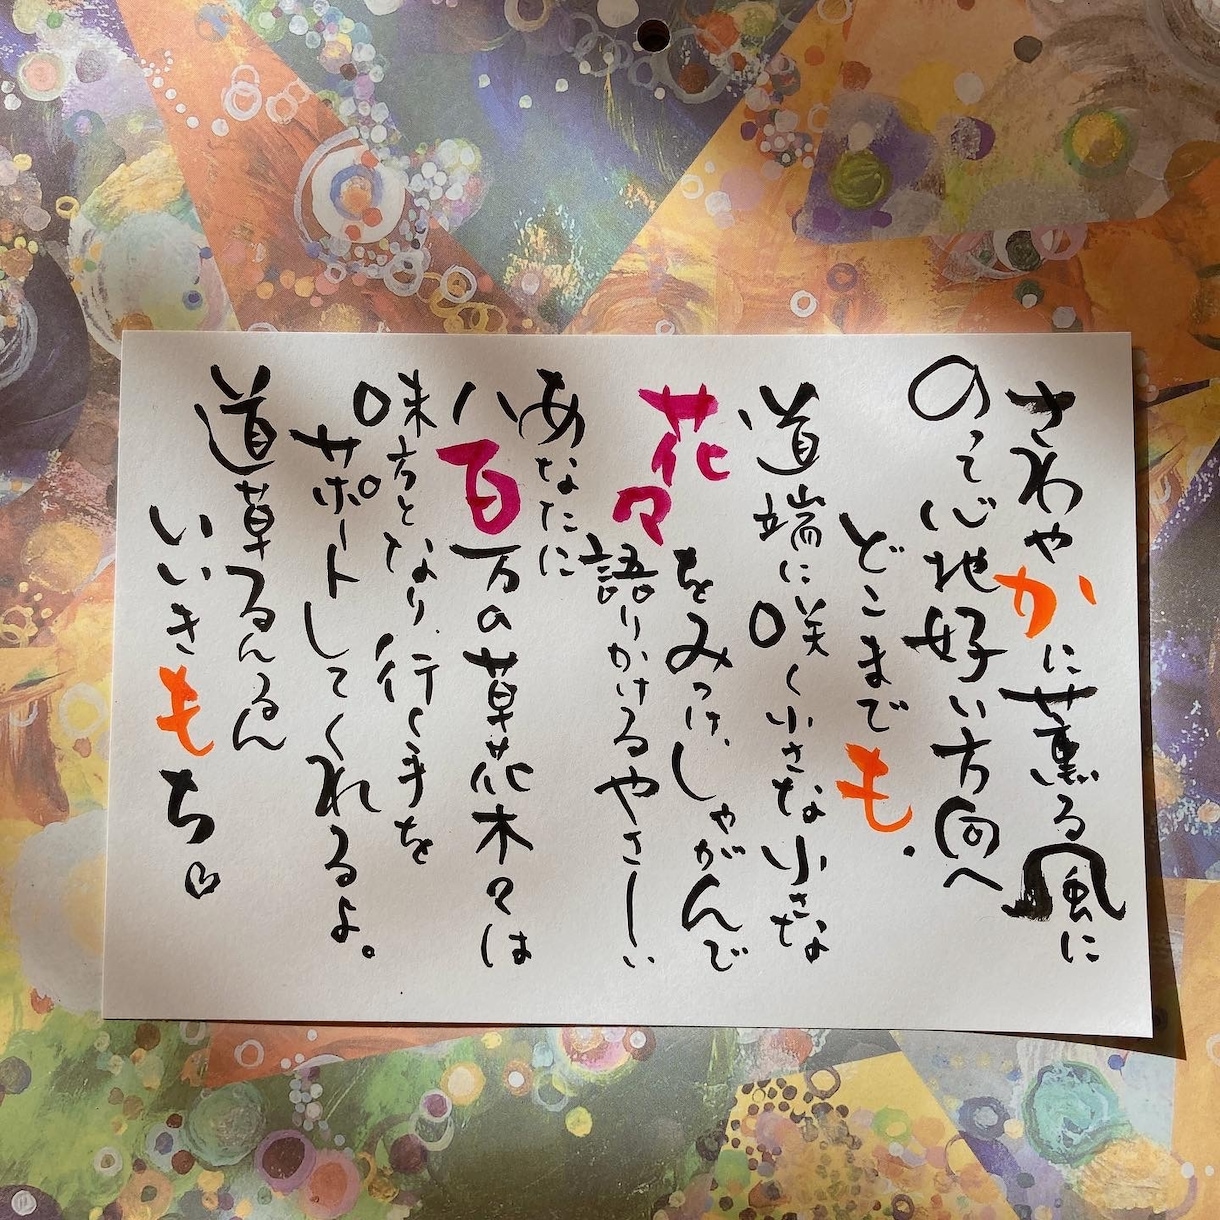 さわやかに薫る風に
のって心地好い方向へ
どこまでも.
道端に咲く小さな小さな
花々をみつけ、しゃがんで
語りかけるやさしい
あなたに
八百万の草花木々は
味方となり、行く手を
サポートしてくれるよ。
道草るんるん
いいきもち♡